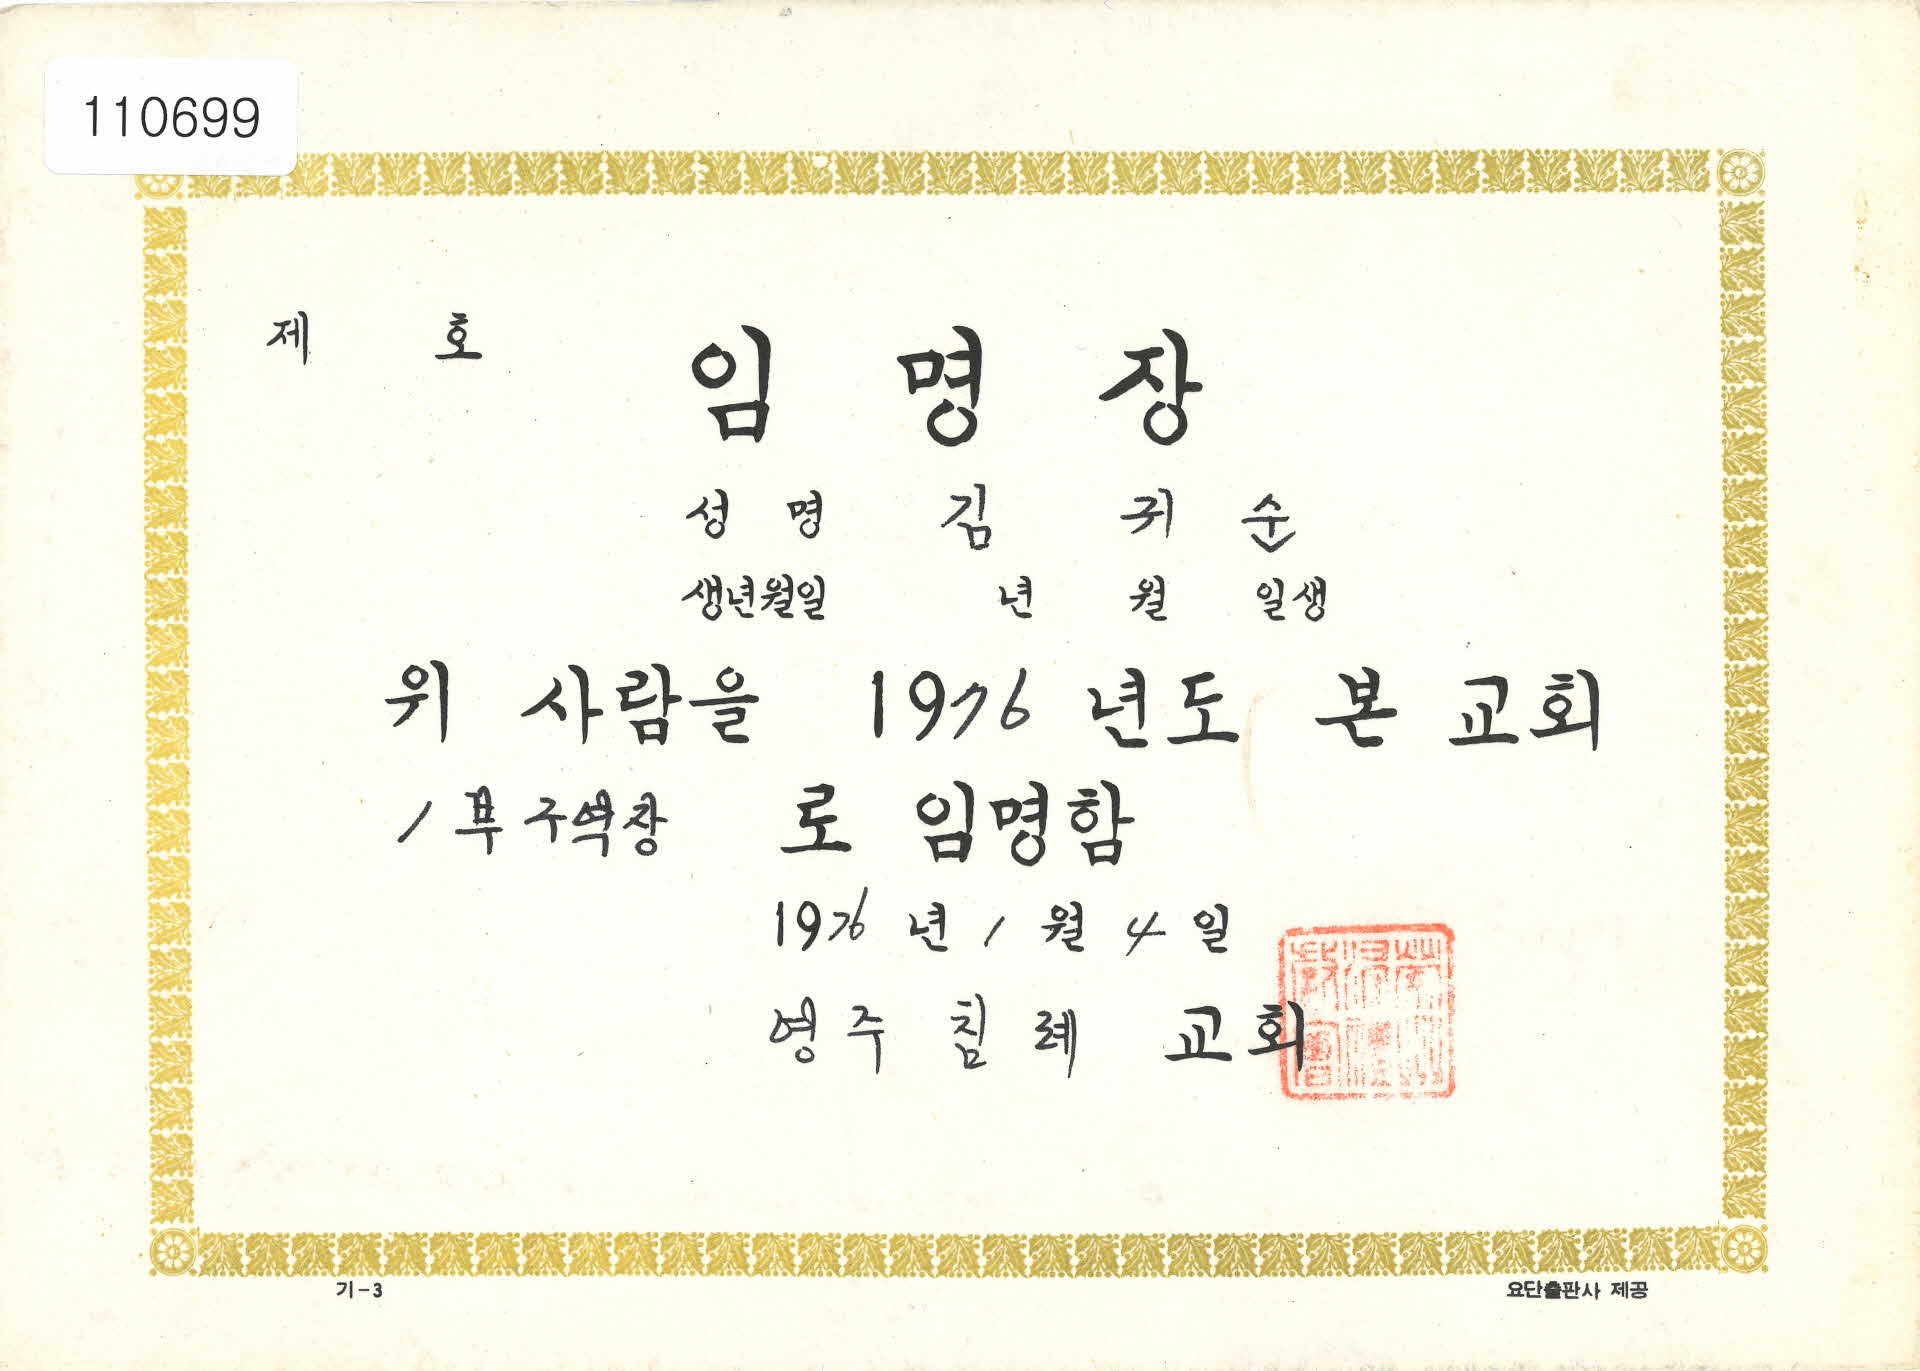 110699
제 호
임 명 장
성 명 김 귀 순
생년월일 년 월 일생
위 사람을 1976 년도 본 교회
1 부 구역장 로 임명함
1976 년 1 월 4 일
영주 침례 교회
기-3
요단출판사 제공